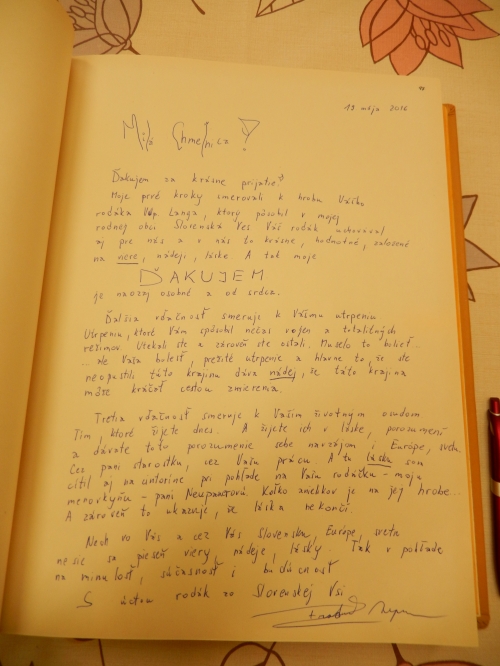 13 mája 2016
Milá Chmeľnica!
Ďakujem za krásne prijatie!
Moje prvé kroky smerovali k hrobu Vášho
rodáka Langa, ktorý pôsobil v mojej
rodnej obci Slovenská Ves Váš rodák
aj pre nás a v nás to krásne, hodnotné, založené
na viere, nádeji, láske A tak moje
ĎAKUJEM
je naozaj osobné a od srdca.
Ďalšia vďačnosť smeruje k Vášmu utrpeniu
Utrpeniu, ktoré Vám spôsobil nečas vojen a totalitných
režimov Utekali ste a zároveň ste ostali. Muselo to bolieť...
... ale Vaša bolesť, prežité utrpenie a hlavne to, že ste
neopustili túto krajinu dáva nádej, že táto krajina
môže kráčať cestou zmierenia.
Tretia vďačnosť smeruje k Vašim životným osudom
Tým, ktoré žijete dnes. A žijete ich v láske, porozumení
a dávate toto porozumenie sebe navzájom i Európe, svetu
Cez pani starostku, cez Vašu prácu. A tú lásku som
cítil aj na cintoríne pri pohľade na Vašu rodáčku - moju
menovkyňu - pani Neupauerovú Koľko anjelikov je na jej hrobe...
A zároveň to ukazuje, že láska nekončí.
Nech vo Vás a cez Vás Slovensku, Európe, svetu
nesie sa pieseň viery, nádeje, lásky. Tak v pohľade
na minulosť, súčasnosť i budúcnosť
S úctou rodák zo Slovenskej Vsi